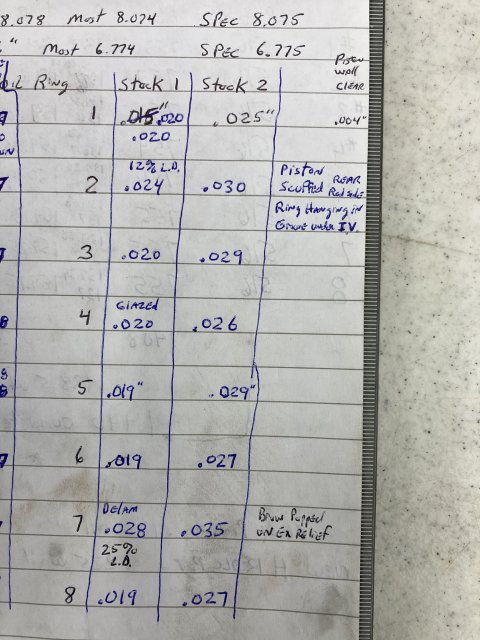 8.078 Most 8.074 SPEC 8.075
" Most 6.774 SPEC 6.775
Oil Ring Stock 1 Stock 2 Piston
wall
clear
1 .015 .020" .025" .004"
.020
12% L.D.
2 .024 .030 Piston
Scuffed REAR Rad side
Ring Hanging in
Groove under I.V.
3 .020 .029
GlAZED
4 .020 .026
5 .019" .029"
6 .019 .027
DElAM
7 .028 .035 Brow Popped
ON EX RELIEF
25%
L.D.
8 .019 .027